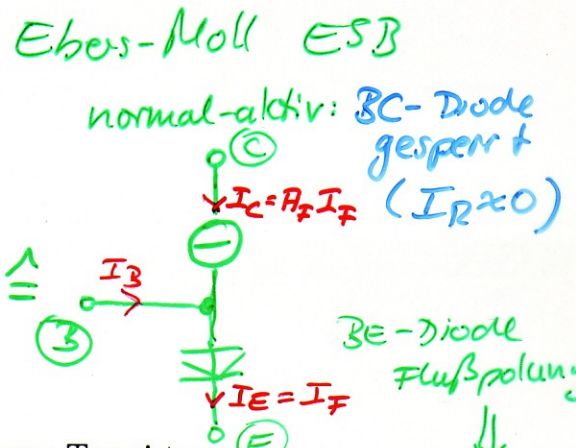 Ebers-Moll ESB
normal-aktiv: BC-Diode
gesperrt
(I_R≈0)
C
I_C=A_F I_F
≙
I_B
B
BE-Diode
Flußpolung
I_E=I_F
E